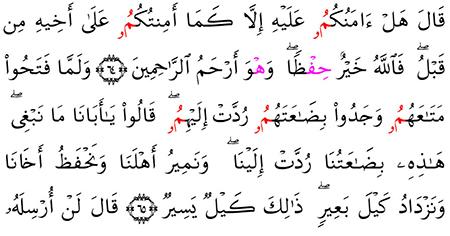 قَالَ هَلْ ءَامَنُكُمُۥ عَلَيْهِ إِلَّا كَمَا أَمِنتُكُمُۥ عَلَىٰ أَخِيهِ مِن
قَبْلُ ۖ فَٱللَّهُ خَيْرٌ حِفْظًا ۖ وَهْوَ أَرْحَمُ ٱلرَّٰحِمِينَ ٦٤ وَلَمَّا فَتَحُوا۟
مَتَٰعَهُمُۥ وَجَدُوا۟ بِضَٰعَتَهُمُۥ رُدَّتْ إِلَيْهِمُۥ ۖ قَالُوا۟ يَٰأَبَانَا مَا نَبْغِى ۖ
هَٰذِهِۦ بِضَٰعَتُنَا رُدَّتْ إِلَيْنَا ۖ وَنَمِيرُ أَهْلَنَا وَنَحْفَظُ أَخَانَا
وَنَزْدَادُ كَيْلَ بَعِيرٍ ۖ ذَٰلِكَ كَيْلٌ يَسِيرٌ ٦٥ قَالَ لَنْ أُرْسِلَهُۥ